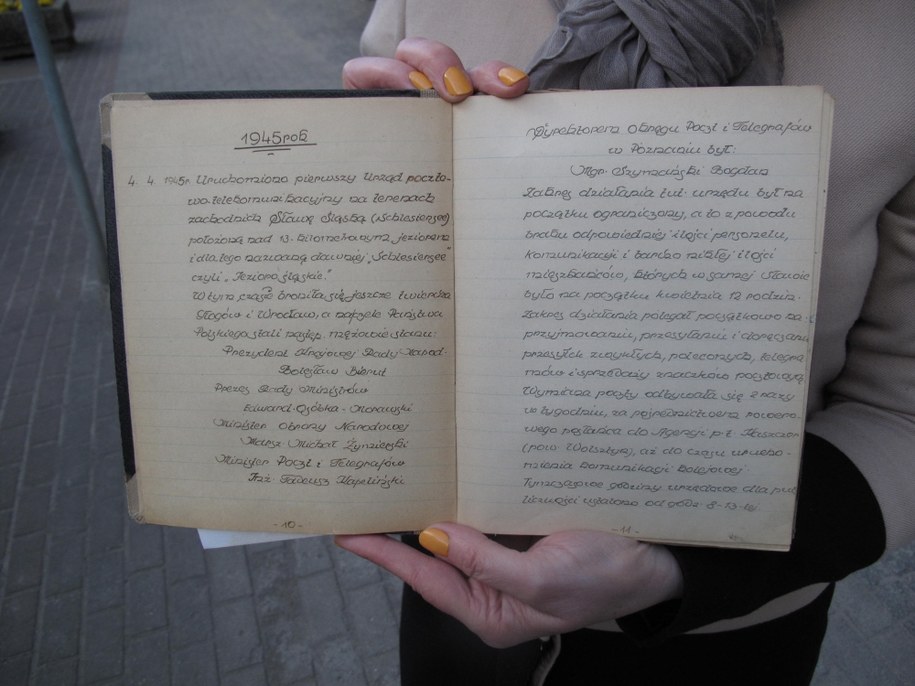 1945 rok
4. 4. 1945r. Uruchomiono pierwszy Urząd poczto-
wo-telekomunikacyjny na terenach
zachodnich Sława Śląska (Schlesiersee)
położoną nad 13. kilometrowym jeziorem
i dlatego nazwaną dawniej "Schlesiersee"
czyli "Jezioro śląskie."
W tym czasie broniła się jeszcze twierdza
Głogów i Wrocław, a na czele Państwa
Polskiego stali następ. mężowie stanu:
Prezydent Krajowej Rady Narod.
Bolesław Bierut
Prezes Rady Ministrów
Edward Osóbka-Morawski
Minister Obrony Narodowej
Marsz. Michał Żymierski
Minister Poczt i Telegrafów
Inż. Tadeusz Kapeliński
- 10 -
Dyrektorem Okręgu Poczt i Telegrafów
w Poznaniu był:
Mgr. Szymański Bogdan
Zakres działania tut. urzędu był na
początku ograniczony, a to z powodu
braku odpowiedniej ilości personelu,
komunikacji i bardzo małej ilości
mieszkańców, których w samej Sławie
było na początku kwietnia 12 rodzin.
Zakres działania polegał początkowo na
przyjmowaniu, przesyłaniu i doręczaniu
przesyłek zwykłych, poleconych, telegra
mów i sprzedaży znaczków pocztowych
Wymiana poczty odbywała się 2 razy
w tygodniu, za pośrednictwem rowero-
wego posłańca do Agencji p.t. Kaszczor
(pow. Wolsztyn), aż do czasu urucho-
mienia komunikacji kolejowej.
Tymczasowe godziny urzędowe dla pub
liczności ustalono od godz. 8-13-tej.
- 11 -